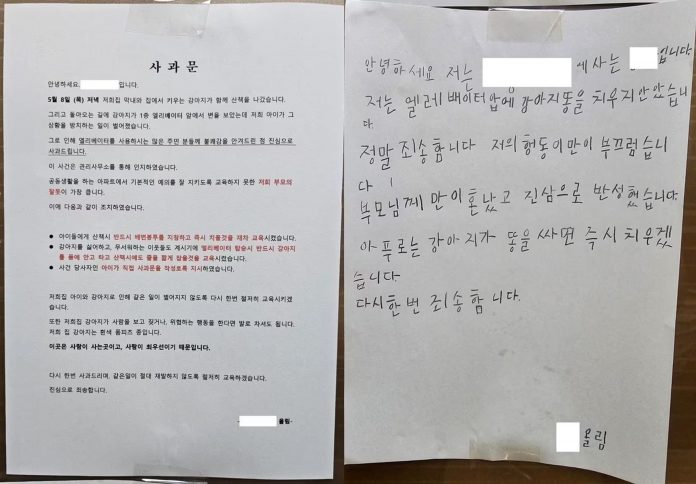 사 과 문
안녕하세요. 입니다.
5월 8일 (목) 저녁 저희집 막내와 집에서 키우는 강아지가 함께 산책을 나갔습니다.
그리고 돌아오는 길에 강아지가 1층 엘리베이터 앞에서 변을 보았는데 저희 아이가 그
상황을 방치하는 일이 벌어졌습니다.
그로 인해 엘리베이터를 사용하시는 많은 주민 분들께 불쾌감을 안겨드린 점 진심으로
사과드립니다.
이 사건은 관리사무소를 통해 인지하였습니다.
공동생활을 하는 아파트에서 기본적인 예의를 잘 지키도록 교육하지 못한 저희 부모의
잘못이 가장 큽니다.
이에 다음과 같이 조치하였습니다.
● 아이들에게 산책시 반드시 배변봉투를 지참하고 즉시 치울것을 재차 교육시켰습니다.
● 강아지를 싫어하고, 무서워하는 이웃들도 계시기에 엘리베이터 탑승시 반드시 강아지
를 품에 안고 타고 산책시에도 줄을 짧게 잡을것을 교육시켰습니다.
● 사건 당사자인 아이가 직접 사과문을 작성토록 지시하였습니다.
저희집 아이와 강아지로 인해 같은 일이 벌어지지 않도록 다시 한번 철저히 교육시키겠
습니다.
또한 저희집 강아지가 사람을 보고 짖거나, 위협하는 행동을 한다면 발로 차셔도 됩니다.
저희 집 강아지는 흰색 폼피츠 종입니다.
이곳은 사람이 사는곳이고, 사람이 최우선이기 때문입니다.
다시 한번 사과드리며, 같은일이 절대 재발하지 않도록 철저히 교육하겠습니다.
진심으로 죄송합니다.
- 올림-
안녕하세요 저는 에 사는 입니다.
저는 엘레베이터 앞에 강아지똥을 치우지 안았습니
다
정말 죄송합니다 저의 행동이 만이 부끄럽습니
다
부모님께 만이 혼났고 진심으로 반성했습니다.
아푸로는 강아지가 똥을 싸면 즉시 치우겠
습니다.
다시한번 죄송합니다.
올림